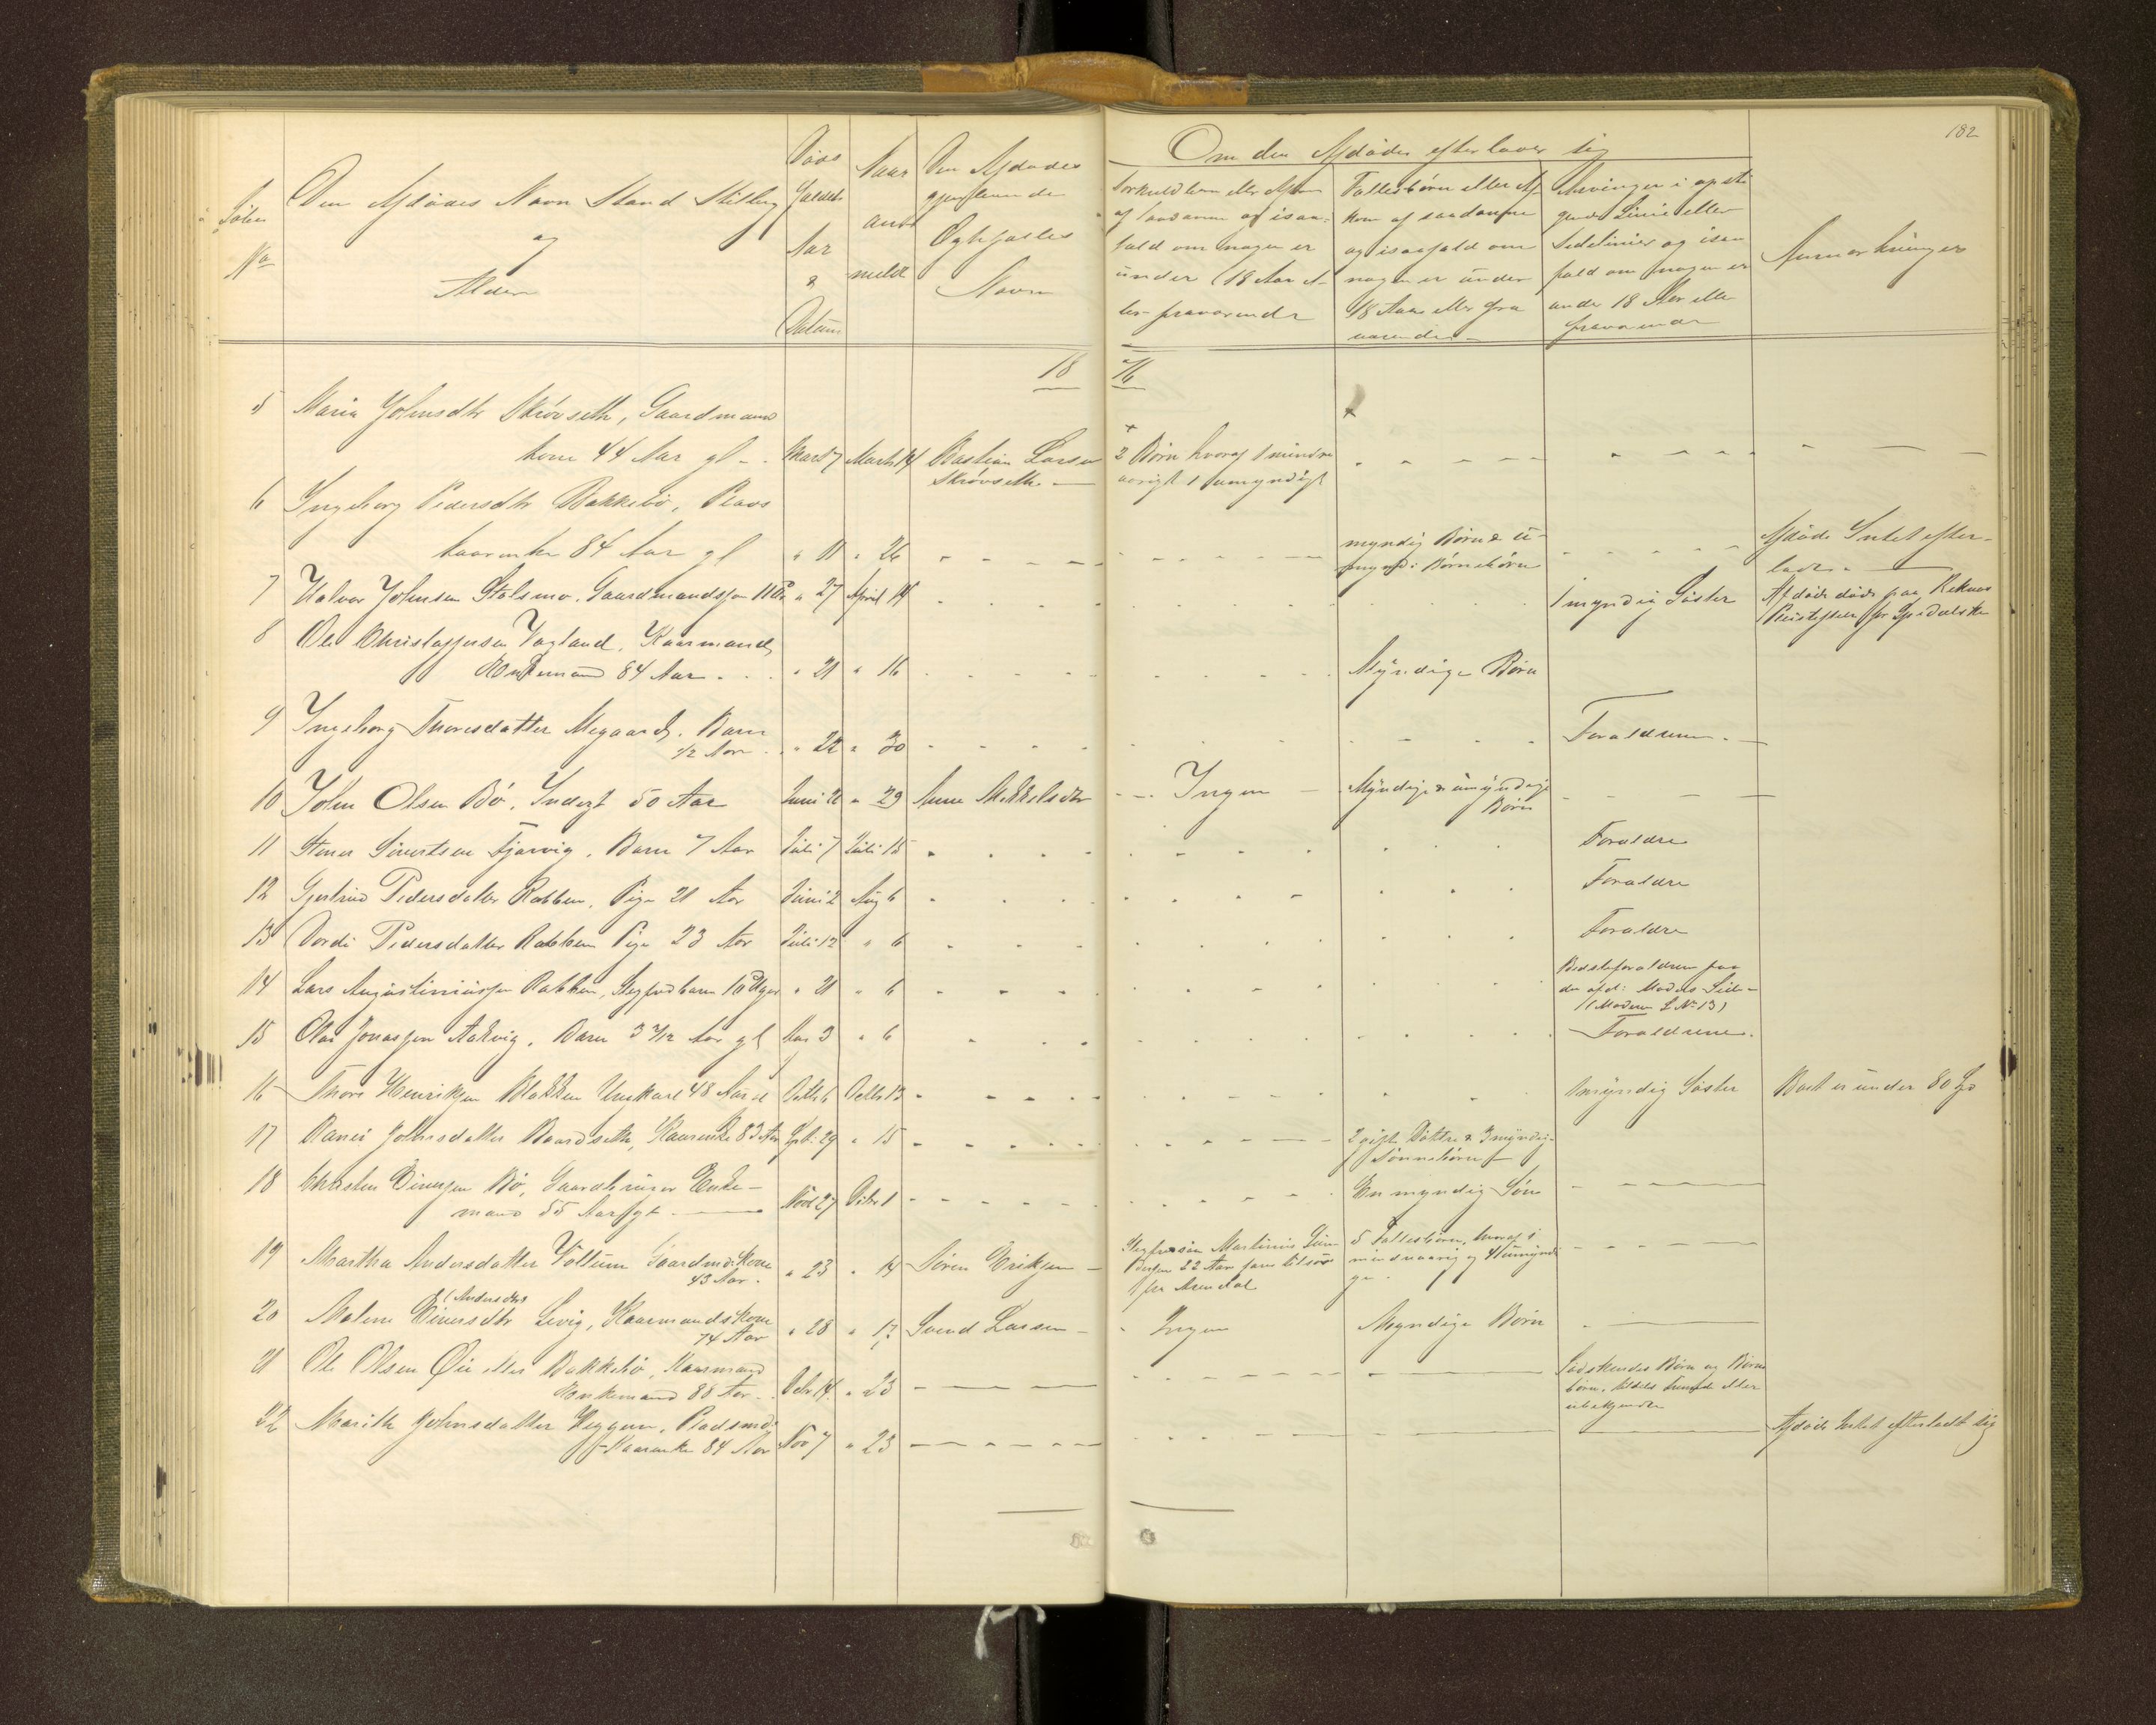 182
Løbe
No
Den Afdødes Navn Stand Stilling
og
Alder
Døds
faldets
Aar
&
Datum
Naar
an
meldt
Den Afdødes
gjenlevende
Ægtefælles
Navn
Om den Afdøde efterlader sig
Særkuldbørn eller Afkom
af saadanne og i saa-
fald om nogen er
under 18 Aar el-
ler fraværende
Fællesbørn eller Af-
kom af saadanne
og i saafald om
nogen er under
18 Aar eller fra
værende
Arvinger i opsti
gende Linie eller
Sidelinier og i saa
fald om nogen er
under 18 Aar eller
fraværende
Anmærkninger
18 76
5 Maria Johnsdtr Skrøvseth, Gaardmands
kone 44 Aar gl - Marts 7 Marts 14 Bastian Larsen 2 Børn hvoraf 1 mindre
Skrøvseth aarigt 1 umyndigt
6 Ingeborg Pedersdtr Bakkebø, Plads
kaarenke 84 Aar gl " 11 " 26 myndig Børn & u- Afdøde Intet efter-
mynd: Børnebørn lader
7 Halvor Johnsen Stolsmo, Gaardmandssøn " 27 April 14 1 myndig Søster Afdøde døde paa Reknes
Pleiestiftelse for Spedalske
8 Ole Christophersen Vagland, Kaarmand,
Enkemand 84 Aar " 21 " 16 Myndige Børn
9 Ingeborg Thoresdatter Megaard, Barn
1/2 Aar " 22 " 30 Forældrene
10 John Olsen Bø, Inderst 50 Aar Juni 20 " 29 Anne Mikkelsdtr Ingen Myndige & umyndige
Børn
11 Stener Sivertsen Fjærvig, Barn 7 Aar Juli 7 Juli 15 Forældre
12 Gjertrud Pedersdatter Rabben, Pige 21 Aar Juni 2 Aug 6 Forældre
13 Dordi Pedersdatter Rabben Pige 23 Aar Juli 12 " 6 Forældre
14 Lars Augustiniussen Rabben, Uegtebarn 10 Uger " 21 " 6 Bedsteforældrene paa
den afd: Moders Side
(Moderen L No 13)
15 Olai Jonassen Aakvig, Barn 3 7/12 Aar gl Mai 3 " 6 Forældrene
16 Thore Henriksen Blakken Ungkarl 48 Aar gl Octbr 6 Octbr 13 1 myndig Søster Boet er under 80
17 Ranei Johnsdatter Baardseth, Kaarenke 83 Aar Sept: 29 " 15 2 gifte Døttre & 3 myndig
Sønnebørn
18 Christen Einersen Bø, Gaardbruger Enke-
mand 55 Aar gl Novb 27 Debr 1 En myndig Søn
19 Martha Andersdatter Voltum Gaardmdskone
43 Aar " 23 " 14 Søren Eriksen Uegte søn Martinius Gun- 5 Fællesbørn, hvoraf 1
dersen 22 Aar fare tilsøes mindreaarig og 4 umyndi
fra Arendal ge
20 Malene Einersdtr (Andersdtr) Levig, Kaarmandskone
74 Aar " 28 " 17 Svend Larsen Ingen Myndige Børn
21 Ole Olsen Øie eller Bakkebø, Kaarmand
Enkemand 88 Aar Debr 14 " 23 Sødskendes Børn og Børne
børn, tildels
ubekjendte
22 Marith Johnsdatter Heggem, Pladsmds
Kaarenke 84 Aar Nov 7 " 23 Afdøde Intet efterladt sig